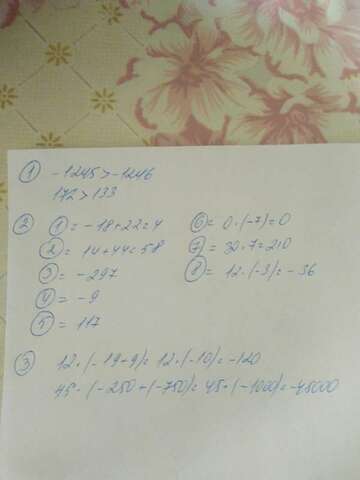 ① -1245 > -1246
172 > 133
② ① = -18+22=4
② = 14+44=58
③ = -297
④ = -9
⑤ = 117
⑥ = 0·(-7)=0
⑦ = 30·7=210
⑧ = 12·(-3)=-36
③ 12·(-19+9)=12·(-10)=-120
45·(-250+(-750)=45·(-1000)=-45000